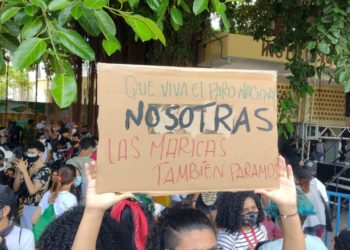 QUE VIVA EL PARO NACIONAL
NOSOTRAS
LAS MARICAS
TAMBIÉN PARAMOS